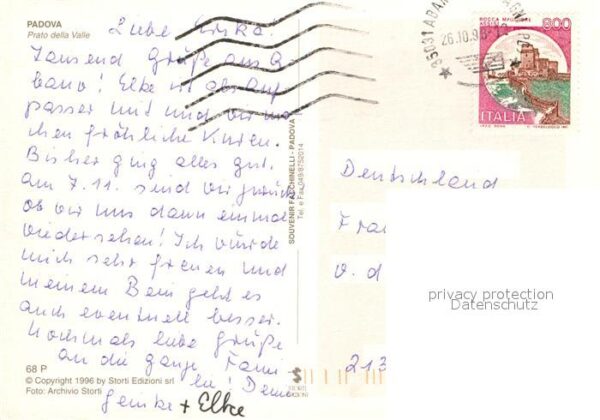 PADOVA
Prato della Valle
Liebe
Tausend Grüße aus A-
bano! Elke ist als Auf-
passer mit und wir ma-
chen fröhliche Kuren.
Bisher ging alles gut.
am 7.11. sind wir zurück
ob wir uns dann einmal
wiedersehen! Ich würde
mich sehr freuen und
meinem Bein geht es
auch eventuell besser.
Nochmals liebe Grüße
an die ganze Fami
lie! Deine
+ Elke
68 P
© Copyright 1996 by Storti Edizioni srl
Foto: Archivio Storti
SOUVENIR FACCHINELLI - PADOVA
Tel. e Fax 049/8752014
35031 ABANO
26.10.96
ROCCA MAGGIORE
ASSISI
800
ITALIA
Deutschland
Frau
v. d
213
privacy protection
Datenschutz